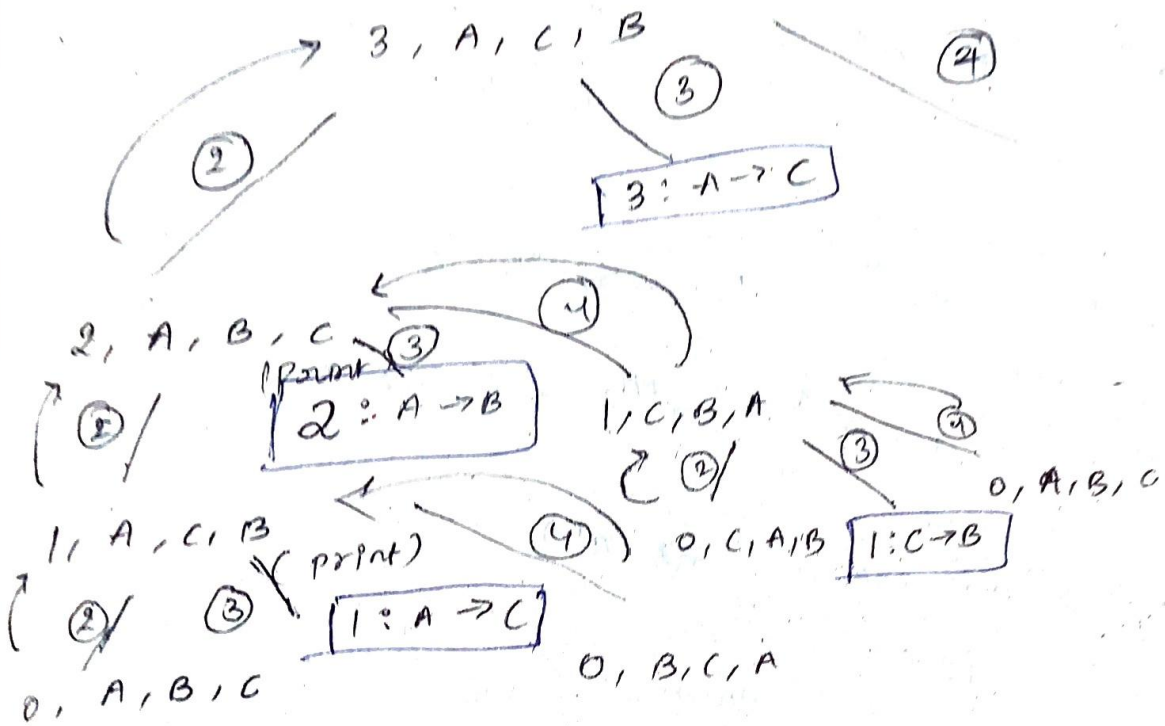 3, A, C, B
3
4
2
3 : A -> C
4
2, A, B, C
3
(print
2 : A -> B
1, C, B, A
2
4
3
2
0, A, B, C
1, A, C, B
(print)
4
0, C, A, B
1 : C -> B
2
3
1 : A -> C
0, B, C, A
0, A, B, C